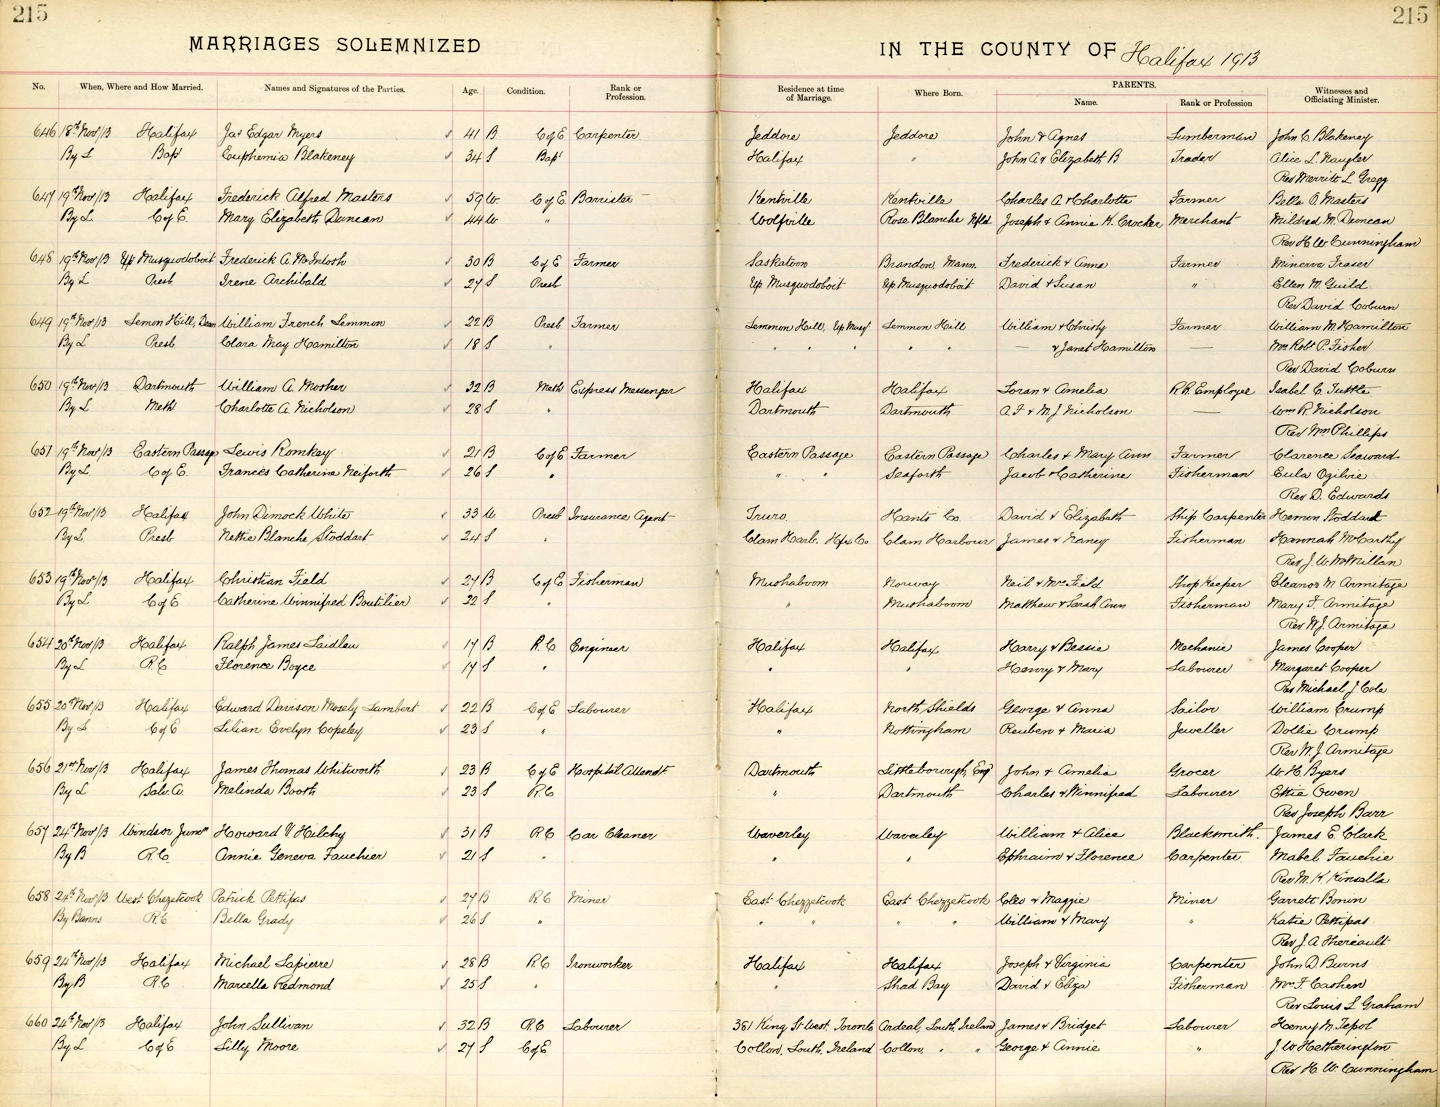 215 215
MARRIAGES SOLEMNIZED IN THE COUNTY OF Halifax 1913
No. When, Where and How Married. Names and Signatures of the Parties. Age. Condition. Rank or Profession. Residence at time of Marriage. Where Born. PARENTS. Name. Rank or Profession Witnesses and Officiating Minister.
646 18th Nov/13 Halifax Jas Edgar Myers ✓ 41 B C of E Carpenter Jeddore Jeddore John & Agnes Lumberman John C Blakeney
By L Bapt Euphemia Blakeney ✓ 34 S Bapt Halifax " John A & Elizabeth B Trader Alice L. Naugler
Rev Merritt L Gregg
647 19th Nov/13 Halifax Frederick Alfred Masters ✓ 59 W. C of E Barrister Kentville Kentville Charles A & Charlotte Farmer Bella O Masters
By L C of E. Mary Elizabeth Duncan ✓ 44 W. " Wolfville Rose Blanche Nfld Joseph & Annie K. Crocker Merchant Mildred M. Duncan
Rev H W Cunningham
648 19th Nov/13 Up Musquodoboit Frederick A. McIntosh ✓ 30 B C of E Farmer Saskatoon Brandon, Mann. Frederick & Anna Farmer Minerva Fraser
By L Presb Irene Archibald ✓ 27 S Presb Up Musquodoboit Up Musquodoboit David & Susan " Ellen M. Guild
Rev David Coburn
649 19th Nov/13 Lemon Hill, William French Lemmon ✓ 22 B Presb Farmer Lemmon Hill, Up Musq Lemmon Hill William & Christy Farmer William M. Hamilton
By L Presb Clara May Hamilton ✓ 18 S " " " " " " — & Janet Hamilton — Mrs Robt P. Fisher
Rev David Coburn
650 19th Nov/13 Dartmouth William A. Mosher ✓ 32 B Meth Express Messenger Halifax Halifax Loran & Amelia R.R. Employee Isabel C Tuttle
By L Meth Charlotte A. Nicholson ✓ 28 S " Dartmouth Dartmouth A. F & M. J Nicholson — Wm R. Nicholson
Rev Wm Phillips
651 19th Nov/13 Eastern Passage Lewis Romkey ✓ 21 B C of E Farmer Eastern Passage Eastern Passage Charles & Mary Ann Farmer Clarence Seaward
By L C of E. Frances Catherine Neiforth ✓ 26 S " " " Seaforth Jacob & Catherine Fisherman Eula Ogilvie
Rev D. Edwards
652 19th Nov/13 Halifax John Dimock White ✓ 33 W Presb Insurance Agent Truro Hants Co David & Elizabeth Ship Carpenter Hemen Stoddard
By L Presb Nettie Blanche Stoddart ✓ 24 S " Clam Harb. Hfx Co Clam Harbour James & Nancy Fisherman Hannah McCarthy
Rev J. W. McMillan
653 19th Nov/13 Halifax Christian Field ✓ 27 B C of E Fisherman Mushaboom Norway Neil & Mrs Field Shop Keeper Eleanor M Armitage
By L C of E Catherine Winnifred Boutilier ✓ 22 S " " Mushaboom Matthew & Sarah Ann Fisherman Mary F. Armitage
Rev W. J. Armitage
654 20th Nov/13 Halifax Ralph James Laidlau ✓ 17 B R.C Engineer Halifax Halifax Harry & Bessie Mechanic James Cooper
By L R.C Florence Boyce ✓ 17 S " " " Henry & Mary Labourer Margaret Cooper
Rev Michael J Cole
655 20th Nov/13 Halifax Edward Davison Mosely Lambert ✓ 22 B C of E Labourer Halifax North Shields George & Anna Sailor William Crump
By L C of E Lilian Evelyn Copeley ✓ 23 S " " Nottingham Reuben & Maria Jeweller Dollie Crump
Rev W. J. Armitage
656 21st Nov/13 Halifax James Thomas Whitworth ✓ 23 B C of E Hospital Attendt Dartmouth Littleborough, Eng John & Amelia Grocer W. H. Byers
By L Salv. A. Melinda Booth ✓ 23 S R.C " Dartmouth Charles & Winnifred Labourer Ettie Owen
Rev Joseph Barr
657 24th Nov/13 Windsor Junctn Howard V Hilchy ✓ 31 B R.C Car Cleaner Waverley Waverley William & Alice Blacksmith. James E. Clark
By B R.C Annie Geneva Fauchier ✓ 21 S " " " Ephraim & Florence Carpenter Mabel Fauchie
Rev M. K Kinsella
658 24th Nov/13 West Chezetcook Patrick Pettipas ✓ 27 B R.C Miner East Chezzetcook East Chezzetcook Cleo & Maggie Miner Garrett Bonin
By Banns R.C Bella Grady ✓ 26 S " " " " " William & Mary " Katie Pettipas
Rev J. A Theriault
659 24th Nov/13 Halifax Michael Lapierre ✓ 28 B R.C Ironworker Halifax Halifax Joseph & Virginia Carpenter John D Burns
By B R.C Marcella Redmond ✓ 25 S " " Shad Bay David & Eliza Fisherman Mrs F Cashen
Rev Louis L Graham
660 24th Nov/13 Halifax John Sullivan ✓ 32 B R.C Labourer 381 King St West, Toronto Ardeal, South, Ireland James & Bridget Labourer Henry M. Tepol
By L C of E Lilly Moore ✓ 27 S C of E Collon, South, Ireland Collon, " " George & Annie " J W Hetherington
Rev H. W. Cunningham